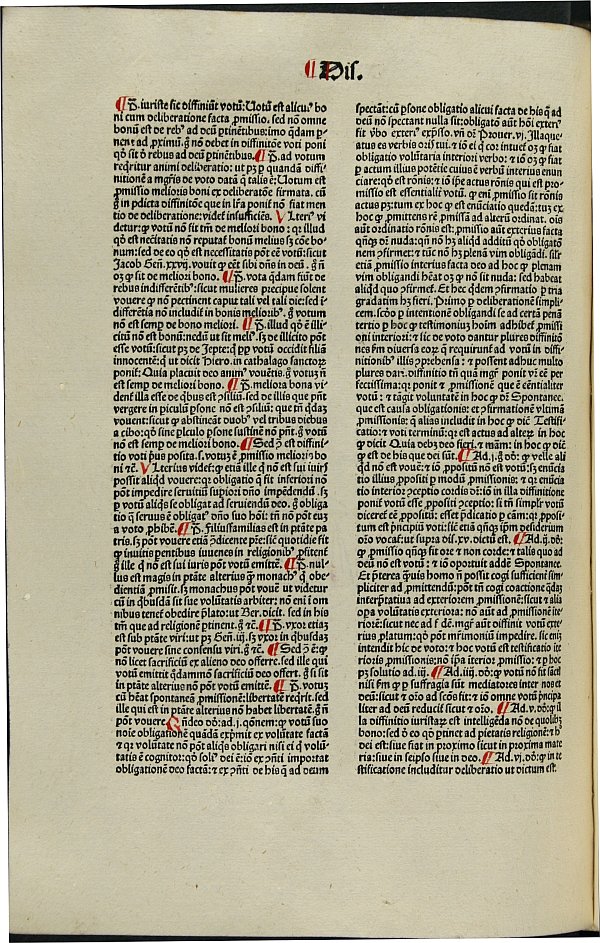 ¶ Dis.
¶ P̄. iuriste sic diffiniūt votū: Uotū est alicui⁹ bo
ni cum deliberatione facta ꝓmissio. sed nō omne
bonū est de reb⁹ ad deū ꝑtinētibus: imo qdam
nent ad ꝓximū. nō debet in diffinitōe voti poni
qō sit ō rebus ad deū ꝑtinētibus. ¶ P̄. ad votum
reqritur animi deliberatio: ut pꝫ ꝑ quandā diffi
nitionē a mgr̄is de voto datā q̄ talis ē: Uotum est
ꝓmissio melioris boni ex deliberatōe firmata. cū
in pdicta diffinitōe que in lr̄a ponit nō fiat men
tio de deliberatione: videt̄ insufficiēs. Ulteri⁹ vi
detur: ꝙ votū nō sit tm̄ de meliori bono: qꝛ illud
qō est necitatis nō reputat̄ bonū melius sꝫ cōe bo
num: sed de eo qō est necessitatis pōt eē votū: sicut
Jacob Gen. xxvij. vouit ꝙ eēt sibi dn̄s in deū.
oꝫ ꝙ sit de meliori bono. ¶ P̄. vota qdam fiūt de
rebus indifferētib⁹: sicut mulieres precipue solent
vouere ꝙ nō pectinent caput tali vel tali die: sed
differētia nō includit̄ in bonis meliorib⁹. votum
nō est semꝑ de bono meliori. ¶ P̄. illud qō ē illi
citū nō est bonū: nedū ut sit meli⁹. sꝫ de illicito pōt
esse votū: sicut pꝫ de Jepte: ꝙ ꝑ votū occidit filiā
innocentē: qui ut dicit Hiero. in cathalago sanctoꝝ
ponit̄: Quia placuit deo anim⁹ vouētis. votuꝫ n̄
est semꝑ de meliori bono. ¶ P̄. meliora bona vi
dent̄ illa esse de qbus est ɔsiliū: sed de illis que pn̄t
vergere in piculū ꝑsone nō est ɔsiliū: que tn̄ qdaꝫ
vouent: sicut ꝙ abstineāt duob⁹ vel tribus diebus
a cibo: qō sine piculo ꝑsone sustinē nō pn̄t. votū
nō est semꝑ de meliori bono. ¶ Sed ꝯ est diffini
tio voti pi⁹us posita. s. votuꝫ ē ꝓmissio melioris bo
ni ꝛc̄. Ulterius videt̄: ꝙ etiā ille q nō est sui iuris
possit aliqd vouere: qꝛ obligatio q̄ fit inferiori nō
pōt impedire seruitiū supiori dn̄o impēdendū. sꝫ
ꝑ votū aliqs se obligat ad seruiendū deo. obliga
tio q̄ seruus ē obligat⁹ dn̄o suo hōi: tm̄ nō pōt euꝫ
a voto ꝓhibē. ¶ P̄. filiusfamilias est in ptāte pa
tris. sꝫ pōt vouere etiā ꝯdicente pr̄e: sic quotidie fit
ꝙ inuitis pentibus iuuenes in religionib⁹ ꝓfitent̄
ille q nō est sui iuris pōt votū emittē. ¶ P̄. nul
lus est magis in ptāte alterius ꝙ̄ monach⁹ q obe
dientiā ꝓmisit. sꝫ monachus pōt vouē ut videtur
cū in qbusdā sit sue volūtatis arbiter: nō eni ī om
nibus tenet̄ obedire plato: ut Ber. dicit. sed in his
tm̄ que ad religionē ptinent. ꝛc̄. ¶ P̄. vxor etiaꝫ
est sub ptāte viri: ut pꝫ Gen. iij. sꝫ vxor in qbusdaꝫ
pōt vouere sine consensu viri. ꝛc̄. ¶ Sed ꝯ ē: ꝙ
nō licet sacrificiū ex alieno deo offerre. sed ille qui
votū emittit qdāmō sacrificiū deo offert. si sit
in ptāte alterius nō pōt votū emittē. ¶ P̄. votuꝫ
cū hēat spontaneā ꝓmissionē: libertatē reqrit. sed
ille qui est in ptāte alterius nō habet libertatē.
pōt vouere. Rn̄deo dō: ad. j. qōnem: ꝙ votū suo
noīe obligationē quādā exprimit ex volūtate factā
⁊ qꝛ voluntate nō pōt aliqs obligari nisi ei q volū
tatis ē cognitor: qō soli⁹ dei ē: iō ex ɔn̄ti importat
obligationē deo factā: ⁊ ex ɔn̄ti de his q̄ ad deum
spectāt: cū ꝑsone obligatio alicui facta de his q̄ ad
deū nō spectant nulla sit: obligatō aūt hōi exteri⁹
fit ꝟbo exteri⁹ expsso. vn̄ dꝛ Prouer. vj. Illaque
atus es verbis oris tui. ⁊ iō ei q cor intuet̄ oꝫ ꝙ fiat
obligatio volūtaria interiori verbo: ⁊ iō oꝫ ꝙ fiat
ꝑ actum illius potētie cuius ē verbū interius enun
ciare: qō est rōnis: ⁊ iō ip̄e actus rōnis qui est pro
missio est essentialit̄ votū. enī ꝓmissio sit rōnis
actus pꝫ: tum ex hoc ꝙ est enūciatio quedā: tuꝫ ex
hoc ꝙ ꝓmittens rē ꝓmissā ad alterū ordinat. ois
aūt ordinatio rōnis est: ꝓmissio aūt exterius facta
qn̄qꝫ dꝛ nuda: qn̄ nō hꝫ aliqd additū qō obligatō
nem ɔfirmet: ⁊ tūc nō hꝫ plenā vim obligādi. sil̄r
etiā ꝓmissio interius facta deo ad hoc ꝙ plenam
vim obligandi hēat oꝫ ꝙ nō sit nuda: sed habeat
aliqd quo ɔfirmet̄. Et hec qdem ɔfirmatio ꝑ tria
gradatim hꝫ fieri. Primo ꝑ deliberationē simpli
cem. scd̄o ꝑ intentionē obligandi se ad certā penā
tertio ꝑ hoc ꝙ testimoniuꝫ hoīm adhibet̄ ꝓmissi
oni interiori: ⁊ sic de voto dantur plures diffinitō
nes fm̄ diuersa eoꝝ q̄ requirunt̄ ad votū in diffi
nitionib⁹ illis ɔprehensa: ⁊ possent adhuc multo
plures dari. diffinitio tn̄ quā mgr̄ ponit vr̄ eē per
fectissima: qꝛ ponit ⁊ ꝓmissionē que ē cēntialiter
votū: ⁊ tāgit voluntatē in hoc ꝙ dꝛ Spontanee.
que est causa obligationis: ⁊ ɔfirmationē vltimā
ꝓmissionis: q̄ alias includit in hoc ꝙ dicit̄ Testifi
catio: ⁊ voti terminū: qꝛ est actus ad alteꝝ in hoc
ꝙ dicit Quia debꝫ deo fieri. ⁊ mām: in hoc ꝙ dicit
ꝙ est de his que dei sūt. ¶ Ad. j. dō: ꝙ velle ali
qd nō est vouē: ⁊ iō ꝓpositū nō est votū: sꝫ enūcia
tio illius ꝓpositi ꝑ modū ꝓmissionis: ⁊ qꝛ enuncia
tio interior ɔceptio cordis dꝛ: iō in illa diffinitione
ponit̄ votū esse ꝓpositi ɔceptio: si tn̄ simplr̄ votū
diceret̄ eē ꝓpositū: esset pdicatio ꝑ cām: qꝛ ꝓposi
tum est pncipiū voti: sic etiā qn̄qꝫ ip̄m desiderium
ōzo vocat̄: ut supra dis. xv. dictū est. ¶ Ad. ij. dō:
ꝙ ꝓmissio qn̄qꝫ fit ore ⁊ non corde: ⁊ talis quo ad
deū nō est votū: ⁊ iō oportuit addē Spontanee.
Et pterea quis homo n̄ possit cogi sufficienti sim
pliciter ad ꝓmittendū: pōt tn̄ cogi coactione qdaꝫ
interptatiua ad exteriorem ꝓmissionē: sicut ⁊ alia
opa volūtatis exteriora: nō aūt ad ꝓmissionē ite
riorē: sicut nec ad fidē. mgr̄ aūt diffinit votū exte
rius ꝓlatum: qō pōt mr̄imoniū impedire. sic eniꝫ
intendit hic de voto: ⁊ hoc votū est testificatio ite
rioris ꝓmissionis: nō ip̄a iterior ꝓmissio: ⁊ ꝑ hoc
pꝫ solutio ad. iij. ¶ Ad. iiij. dō: ꝙ votū nō sit sacris
nisi fm̄ ꝙ ꝑ suffragia sūt mediatores inter nos et
deū: sicut ⁊ orō ad scōs fit: ⁊ iō omne votū pncipa
liter ad deū reducit̄ sicut ⁊ orō. ¶ Ad. v. dō: ꝙ il
la diffinitio iuristaꝝ est intelligēda nō de quolibꝫ
bono: sed ō eo qō ptinet ad pietatis religionē: ⁊ h⁹
dei est: siue fiat in proximo sicut in proxima mate
ria: siue in seipso siue in deo. ¶ Ad. vj. dō: ꝙ in te
stificatione includitur deliberatio ut dictum est.